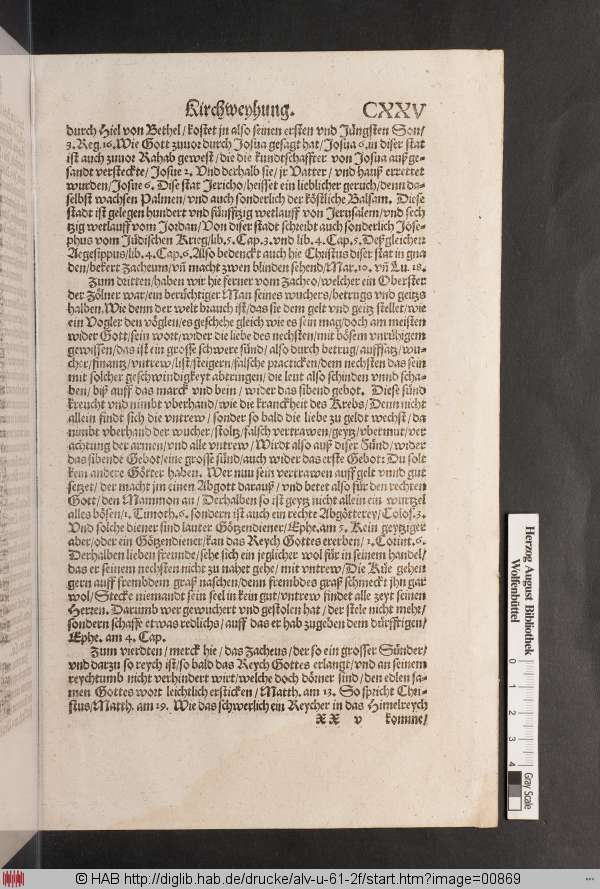 Kirchweyhung. CXXV
durch Hiel von Bethel / kostet jn also seinen ersten vnd Jüngsten Son /
3. Reg. 16. Wie Gott zuuor durch Josua gesagt hat / Josua 6. in diser stat
ist auch zuuor Rahab gewest / die die kundtschaffter von Josua außge-
sandt versteckte / Josue 2. Vnd derhalb sie / jr Vatter / vnd hauß errettet
wurden / Josue 6. Dise stat Jericho / heisset ein lieblicher geruch / denn da-
selbst wachsen Palmen / vnd auch sonderlich der köstliche Balsam. Diese
stadt ist gelegen hundert vnd fünfftzig wetlauff von Jerusalem / vnd sech
tzig wetlauff vom Jordan / Von diser stadt schreibt auch sonderlich Jose-
phus vom Jüdischen Krieg / lib. 5. Cap. 3. vnd lib. 4. Cap. 5. Deßgleichen
Aegesippus / lib. 4. Cap. 6. Also bedenckt auch hie Christus diser stat in gna
den / bekert Zacheum / vñ macht zwen blinden sehend / Mar. 10. vñ Lu. 18.
Zum dritten / haben wir hie ferner vom Zacheo / welcher ein Oberster
der Zölner war / ein berüchtiger Man seines wuchers / betrugs vnd geitzs
halben. Wie denn der welt brauch ist / das sie dem gelt vnd geitz stellet / wie
ein Vogler den vöglen / es geschehe gleich wie es sein mag / doch am meisten
wider Gott / sein wort / wider die liebe des nechsten / mit bösem vnrühigem
gewissen / das ist ein grosse schwere sünd / also durch betrug / auffsatz / wu-
cher / finantz / vntrew / list / steigern / falsche practicken / dem nechsten das sein
mit solcher geschwindigkeyt abtringen / die leut also schinden vnnd scha-
ben / biß auff das marck vnd bein / wider das sibend gebot. Diese sünd
kreucht vnd nimbt vberhand / wie die kranckheit des Krebs / Denn nicht
allein findt sich die vntrew / sonder so bald die liebe zu geldt wechst / da
nimbt vberhand der wucher / stoltz / falsch vertrawen / geytz / vbermut / ver
achtung der armen / vnd alle vntrew / Wirdt also auß diser Sünd / wider
das sibende Gebot / eine grosse sünd / auch wider das erste Gebot: Du solt
kein andere Götter haben. Wer nun sein vertrawen auff gelt vnnd gut
setzet / der macht jm einen Abgott darauß / vnd betet also für den rechten
Gott / den Mammon an / Derhalben so ist geytz nicht allein ein wurtzel
alles bösen / 1. Timoth. 6. sondern ist auch ein rechte Abgötterey / Colos. 3.
Vnd solche diener sind lauter Götzendiener / Ephe. am 5. Kein geytziger
aber / oder ein Götzendiener / kan das Reych Gottes ererben / 1. Corint. 6.
Derhalben lieben freunde / sehe sich ein jeglicher wol für in seinem handel /
das er seinem nechsten nicht zu nahet gehe / mit vntrew / Die Küe gehen
gern auff frembdem graß naschen / denn frembdes graß schmeckt jhn gar
wol / Stecke niemandt sein seel in kein gut / vntrew findet alle zeyt seinen
Herren. Darumb wer gewuchert vnd gestolen hat / der stele nicht mehr /
sondern schaffe etwas redlichs / auff das er hab zugeben dem dürfftigen /
Ephe. am 4. Cap.
Zum vierdten / merck hie / das Zacheus / der so ein grosser Sünder /
vnd darzu so reych ist / so bald das Reych Gottes erlangt / vnd an seinem
reychtumb nicht verhindert wirt / welche doch dörner sind / den edlen sa-
men Gottes wort leichtlich ersticken / Matth. am 13. So spricht Chri-
stus / Matth. am 19. Wie das schwerlich ein Reycher in das Himelreych
XX v komme /
Herzog August Bibliothek
Wolfenbüttel
0 1 2 3 4
Gray Scale
© HAB http://diglib.hab.de/drucke/alv-u-61-2f/start.htm?image=00869